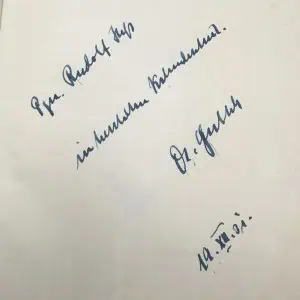 Pgn. Rudolf Heß
in herzlicher Verbundenheit.
Dr. Goebbels
19. XII. 31.